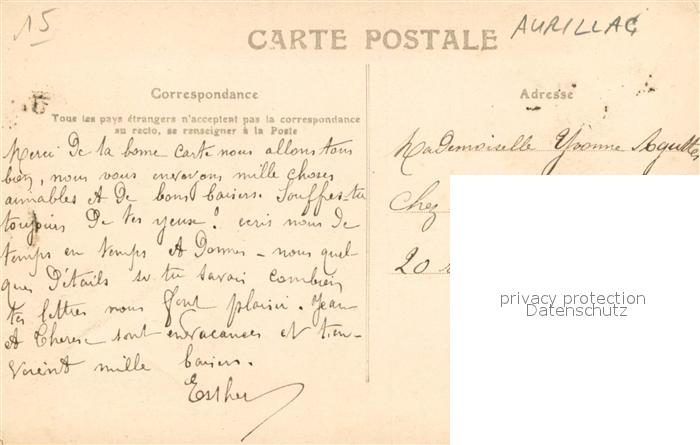 15
AURILLAC
CARTE POSTALE
Correspondance
Tous les pays étrangers n'acceptent pas la correspondance
au recto, se renseigner à la Poste
Merci De la bonne carte nous allons tous
bien, nous vous envoyons mille choses
aimables et De bons baisers. Souffres-tu
toujours De tes yeux? ecris nous De
temps en temps et Donnes-nous quel-
ques Détails si tu savais combien
tes lettres nous font plaisir. Jean
et Therese sont en vacances et t'en-
voient mille baisers.
Esther
Adresse
Mademoiselle Yvonne
Chez
20
privacy protection
Datenschutz